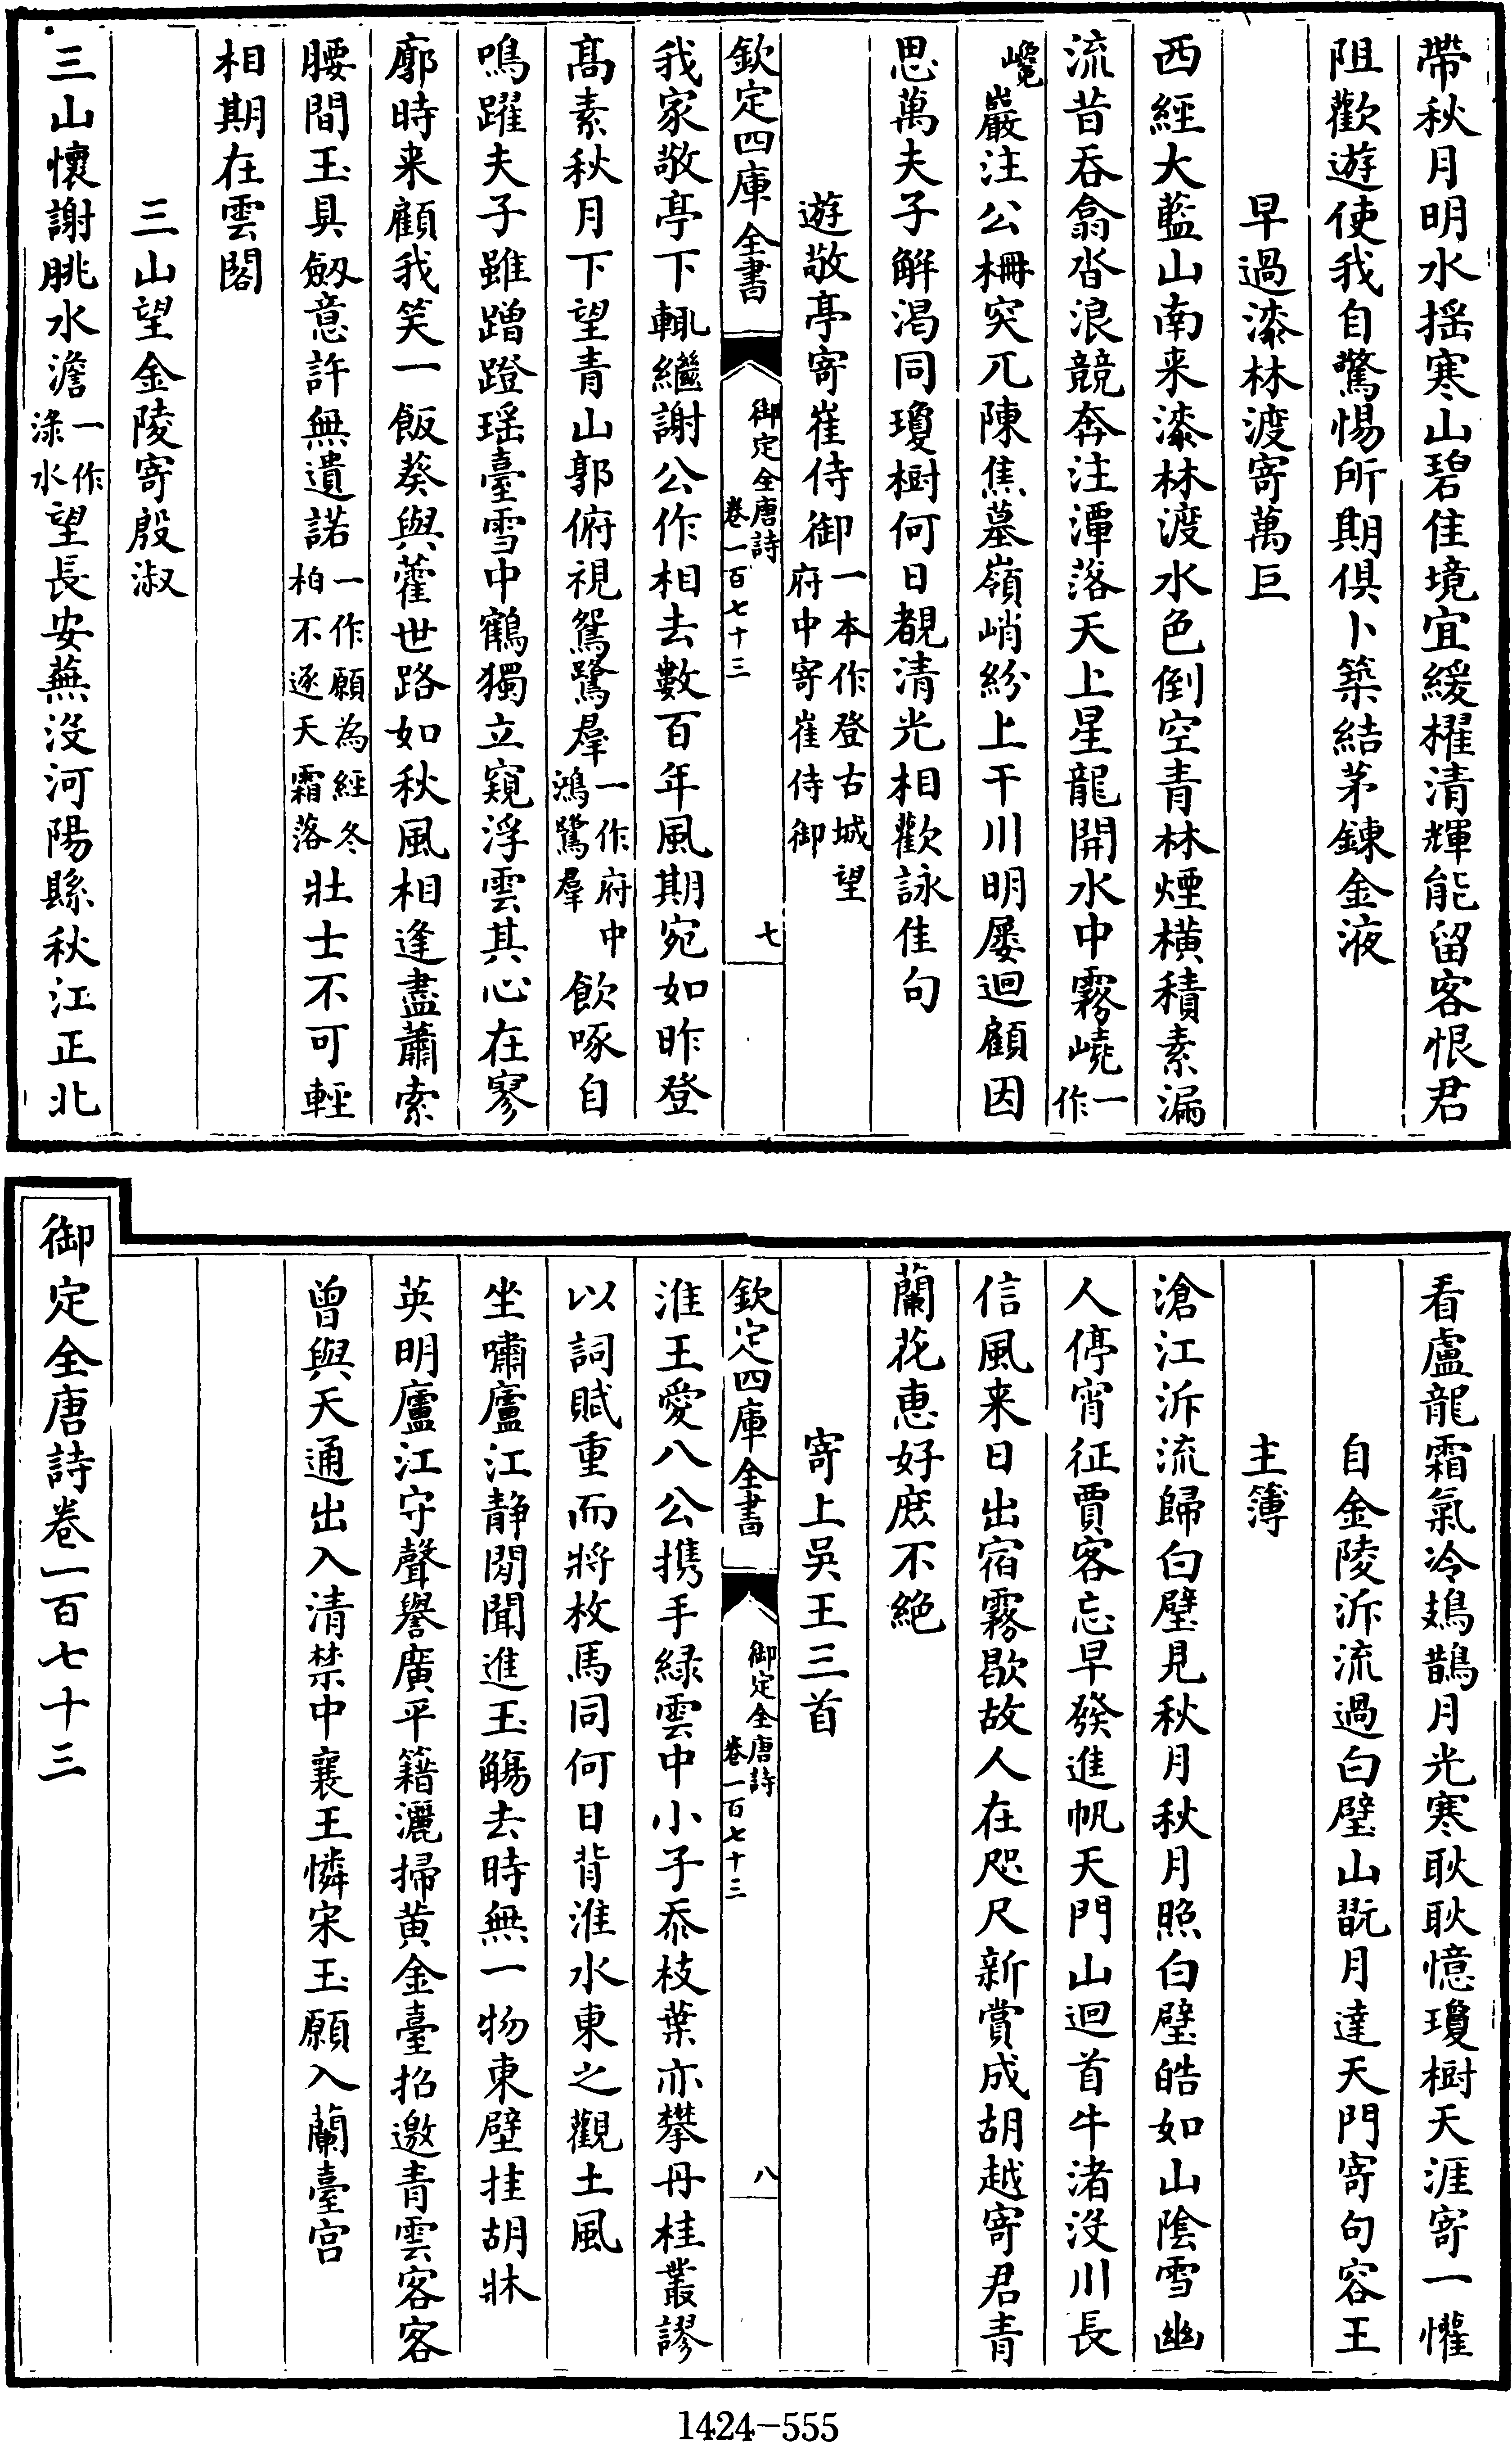 帶秋月明水揺寒山碧佳境宜緩櫂清輝能留客恨君
阻歡遊使我自驚惕所期俱卜築結茅鍊金液
早過漆林渡寄萬巨
西經大藍山南来漆林渡水色倒空青林煙横積素漏
流昔吞翕沓浪競奔注潭落天上星龍開水中霧嶢一作
巉巖注公栅突兀陳焦墓嶺峭紛上干川明屢迴顧因
思萬夫子解渇同瓊樹何日覩清光相歡詠佳句
遊敬亭寄崔侍御一本作登古城望府中寄崔侍御
欽定四庫全書
御定全唐詩
卷一百七十三
七
我家敬亭下輒繼謝公作相去數百年風期宛如昨登
髙素秋月下望青山郭俯視鴛鷺羣一作府中鴻鷺羣飲啄自
鳴躍夫子雖蹭蹬瑶臺雪中鶴獨立窺浮雲其心在寥
廓時来顧我笑一飯葵與藿世路如秋風相逢盡蕭索
腰間玉具劔意許無遺諾一作願為經冬柏不逐天霜落壯士不可輕
相期在雲閣
三山望金陵寄殷淑
三山懷謝朓水澹一作渌水望長安蕪没河陽縣秋江正北
看盧龍霜氣冷鳷鵲月光寒耿耿憶瓊樹天涯寄一懽
自金陵泝流過白壁山翫月達天門寄句容王
主簿
滄江泝流歸白璧見秋月秋月照白璧皓如山陰雪幽
人停宵征賈客忘早發進帆天門山迴首牛渚没川長
信風来日出宿霧歇故人在咫尺新賞成胡越寄君青
蘭花惠好庶不絶
寄上吳王三首
欽定四庫全書
御定全唐詩
卷一百七十三
八
淮王愛八公携手緑雲中小子忝枝葉亦攀丹桂叢謬
以詞賦重而將枚馬同何日背淮水東之觀土風
坐嘯廬江静閒聞進玉觴去時無一物東壁挂胡牀
英明廬江守聲譽廣平籍灑掃黄金臺招邀青雲客客
曾與天通出入清禁中襄王憐宋玉願入蘭臺宫
御定全唐詩卷一百七十三
1424-555